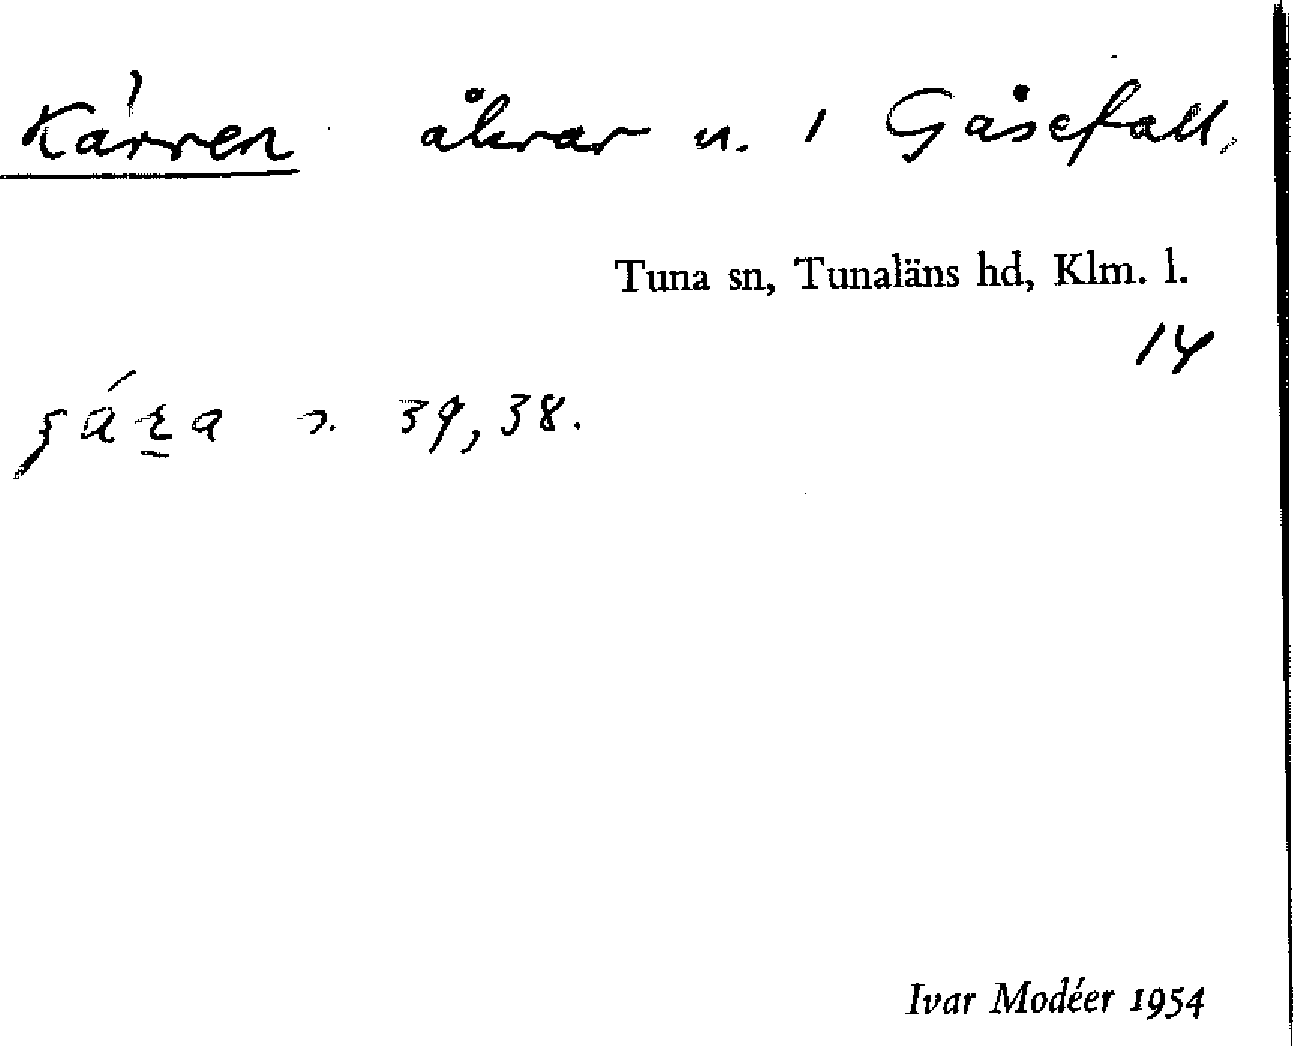 Kärren åkrar n. 1 Gåsefall,
Tuna sn, Tunaläns hd, Klm. l.
14
39, 38.
Ivar Modéer 1954